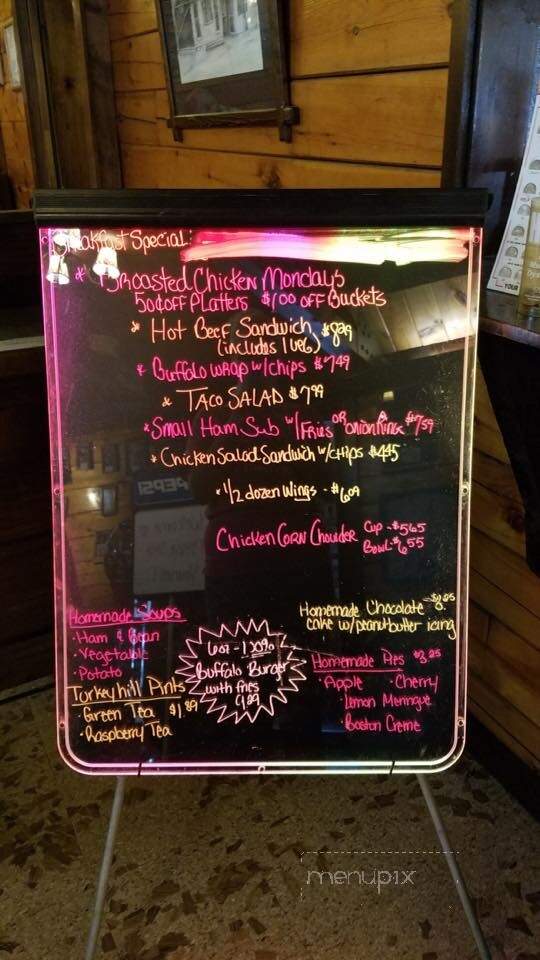 Breakfast Special:
* Broasted Chicken Mondays
50¢ OFF Platters $1.00 OFF Buckets
* Hot Beef Sandwich $8.29
(includes 1 veg)
* Buffalo Wrap w/chips $7.49
* TACO SALAD $7.99
* Small Ham Sub w/Fries OR onion Rings $7.59
* Chicken Salad Sandwich w/chips $4.45
* 1/2 dozen wings - $6.09
Chicken Corn Chowder Cup - $5.65
Bowl - $6.55
Homemade Chocolate
cake w/peanutbutter icing
Homemade Soups
• Ham & Bean
• Vegetable
• Potato
Turkey hill Pints
• Green Tea $1.89
• Raspberry Tea
Buffalo Burger
with fries
Homemade Pies $3.25
• Apple • Cherry
• Lemon Meringue
• Boston Creme
PEPSI
YOUR
menupix